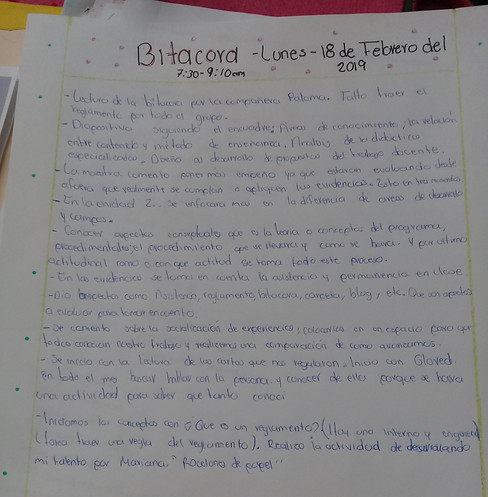 Bitacora - Lunes - 18 de Febrero del
7:30 - 9:10am 2019
- Lectura de la bitacora por la compañera Paloma. Falto traer el
reglamento por todo el grupo.
- Diapositiva siguiendo el encuadre; Areas de conocimiento, la relación
entre contenido y metodo de enseñanza. Analisis de vi didactica
especializados. Diseño al desarrollo de proposito del trabajo docente.
- La maestra comento poner mas empeño ya que estaran evaluando desde
afuera que realmente se cumplan o apliquen las evidencias. Esto en tres momentos
- En la unidad 2.. Se enfocara mas en la diferencia de areas de desarrollo
y campos.
- Conocer aspectos conceptuales que es la teoria o conceptos del programa,
procedimentales; el procedimiento que se llevara y como se hara. Y por ultimo
actitudinal como o con que actitud se toma todo este proceso.
- En las evidencias se toma en cuenta la asistencia y permanencia en clase
- Dio aspectos como Asistencia, reglamento, bitacora, carpeta, blog, etc. Que son aspectos
a evaluar para tomar en cuenta.
- Se comento sobre la socialización de experiencias; colocarlas en un espacio para que
todos conozcan nuestro trabajo y realicemos una comparación de como avanzamos.
- Se inicio con la lectura de las cartas que nos regalaron. Inicio con
en todo el mes hacer hablar con la persona y conocer de ella porque se hara
una actividad para saber que tanto conoci
- Iniciamos los conceptos con ¿Que es un reglamento? (Hay uno interno y en general)
(Tarea traer una regla del reglamento). Realizo la actividad de desarrollando
mi talento por Mariana. " de papel"